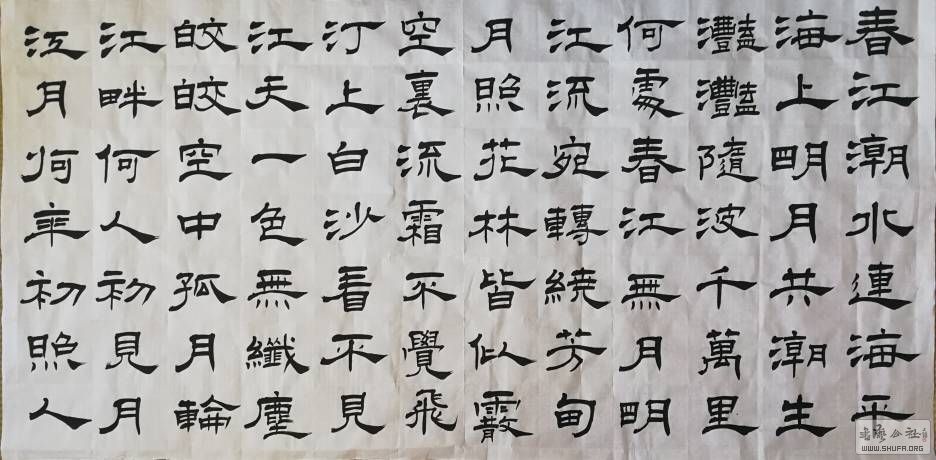 春江潮水連海平
海上明月共潮生
灩灩隨波千萬里
何處春江無月明
江流宛轉繞芳甸
月照花林皆似霰
空裏流霜不覺飛
汀上白沙看不見
江天一色無纖塵
皎皎空中孤月輪
江畔何人初見月
江月何年初照人
WWW.SHUFA.ORG